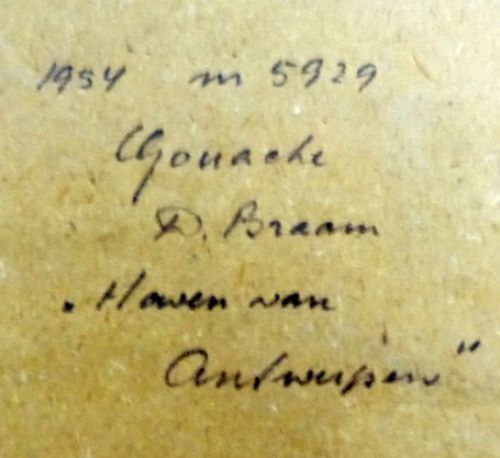 1954 m 5929
Gouache
D. Braam
„Haven van
Antwerpen"